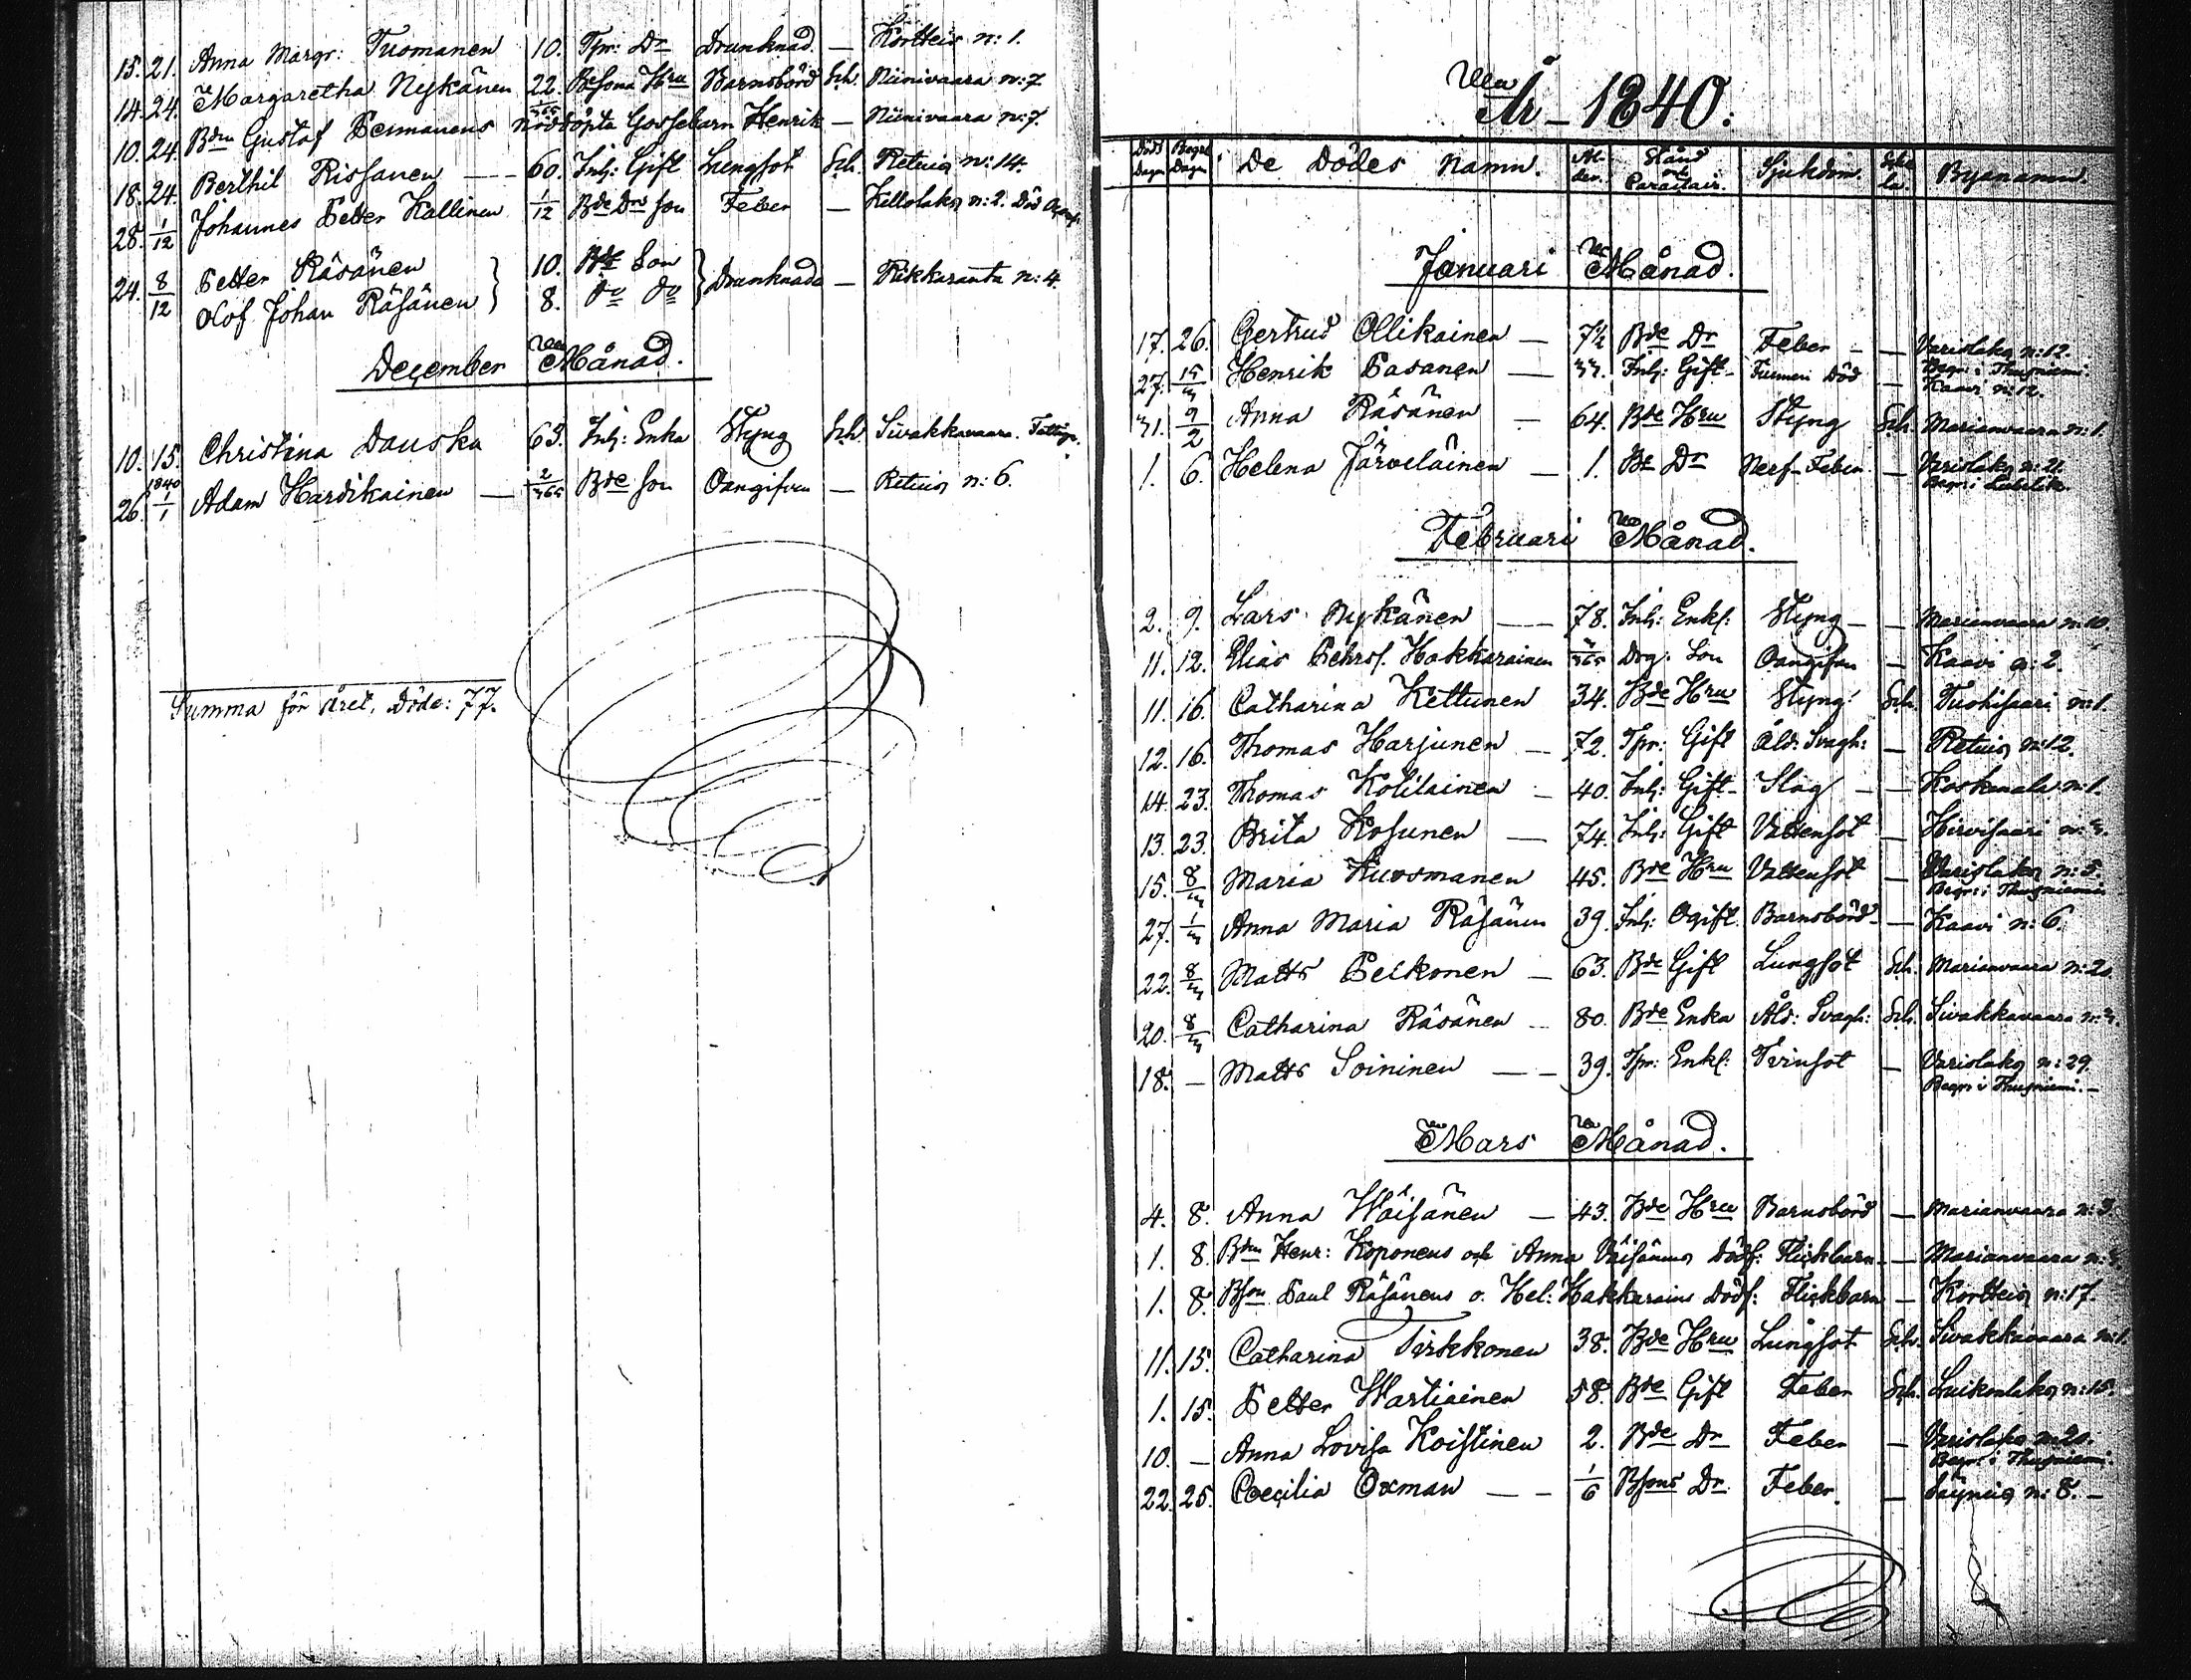 15. 21. Anna Margr: Tuomanen 10. Tpr: Dr Drunknad. — Kortteis n: 1.
14. 24. Margaretha Nykänen 22. Bdsona Hru Barnsbörd Sch. Niinivaara n: 7
10. 24. Bdn Gustaf Pennanens nöddöpta Gossebarn Henrik — Niinivaara n: 7.
18. 24. Berthil Rissanen — 60. Inh: Gift Lungsot Sch. Retuis n: 14.
28. 1/12 Johannes Petter Kallinen 1/12 Bde Drs son Feber — n: 2.
24. 8/12 Petter Räsänen } 10. Bde Son } Drunknade — Rikkaranta n: 4.
Olof Johan Räsänen 8. do do
December Månad.
10. 15. Christina Danska 63. Inh: Enka Styng Sch. Sivakkavaara. Fattige.
26. 1840 1/1 Adam Hardikainen — 2/365 Bde son Oangifven — Retuis n: 6.
Summa för Året, Döde: 77.
År 1840:
Döds Dagen Begrf Dagen De Dödes Namn. Ålder. Stånd och Caractair. Sjukdom. Byanamn.
Januari Månad.
17. 26. Gertrud Ollikainen — 7½ Bde Dr Feber — Varislaks n: 12.
Begr: i Thusniemi.
27. 15/3 Henrik Pasanen — 33. Inh: Gift Död — Kaavi n: 12.
31. 9/2 Anna Räsänen — 64. Bde Hru Styng Sch. Marianvaara n: 1.
1. 6. Helena Järveläinen — 1. Bde Dr Nerf-Feber — Varislaks n: 21.
Begr: i Libelits.
Februari Månad.
2. 9. Lars Nykänen — 78. Inh: Enkl: Styng — Marianvaara n: 10
11. 12. Elias Pehrs. Hakkarainen 3/365 Drg: Son Oangifven — Kaavi n: 2.
11. 16. Catharina Kettunen 34. Bde Hru Styng Sch. Tuohisaari n: 1.
12. 16. Thomas Harjunen — 72. Tpr: Gift Åld: Svagh: — Retuis n: 12.
14. 23. Thomas Kotilainen — 40. Inh: Gift Slag — Koskenala n: 1.
13. 23. Brita Kosunen — 74. Inh: Gift Vattensot — Hirvisaari n: 3.
15. 8/3 Maria Kuosmanen 45. Bde Hru Vattensot — Varislaks n: 5.
Begr: i Thusniemi
27. 1/3 Anna Maria Räsänen 39. Inh: Ogift Barnsbörd — Kaavi n: 6.
22. 8/3 Matts Pelkonen — 63. Bde Gift Lungsot Sch. Marianvaara n: 20
20. 8/3 Catharina Räsänen — 80. Bde Enka Åld: Svagh: Sch. Sivakkavaara n: 3.
18. — Matts Soininen — 39. Tpr: Enkl. Tvinsot — Varislaks n: 29.
Begr: i Thusniemi. —
Mars Månad.
4. 8. Anna Wäisänen — 43. Bde Hru Barnsbörd — Marianvaara n: 3.
1. 8. Bdn Henr: Koponens och Anna Väisänens Dödf: Flickbarn — Marianvaara n: 3.
1. 8. Bson Paul Räsänens o. Hel: Hakkarains Dödf: Flickbarn — Kortteis n: 17.
11. 15. Catharina Tirkkonen 38. Bde Hru Lungsot Sch. Sivakkavaara n: 1.
1. 15. Petter Wartiainen 58. Bde Gift Feber Sch. Luikonlaks n: 15.
10. — Anna Lovisa Koistinen 2. Bde Dr Feber — Varislaks n: 20.
Begr: i Thusniemi.
22. 25. Cecilia Oxman — 1/6 Bsons Dr Feber. — Säyneis n: 8. —